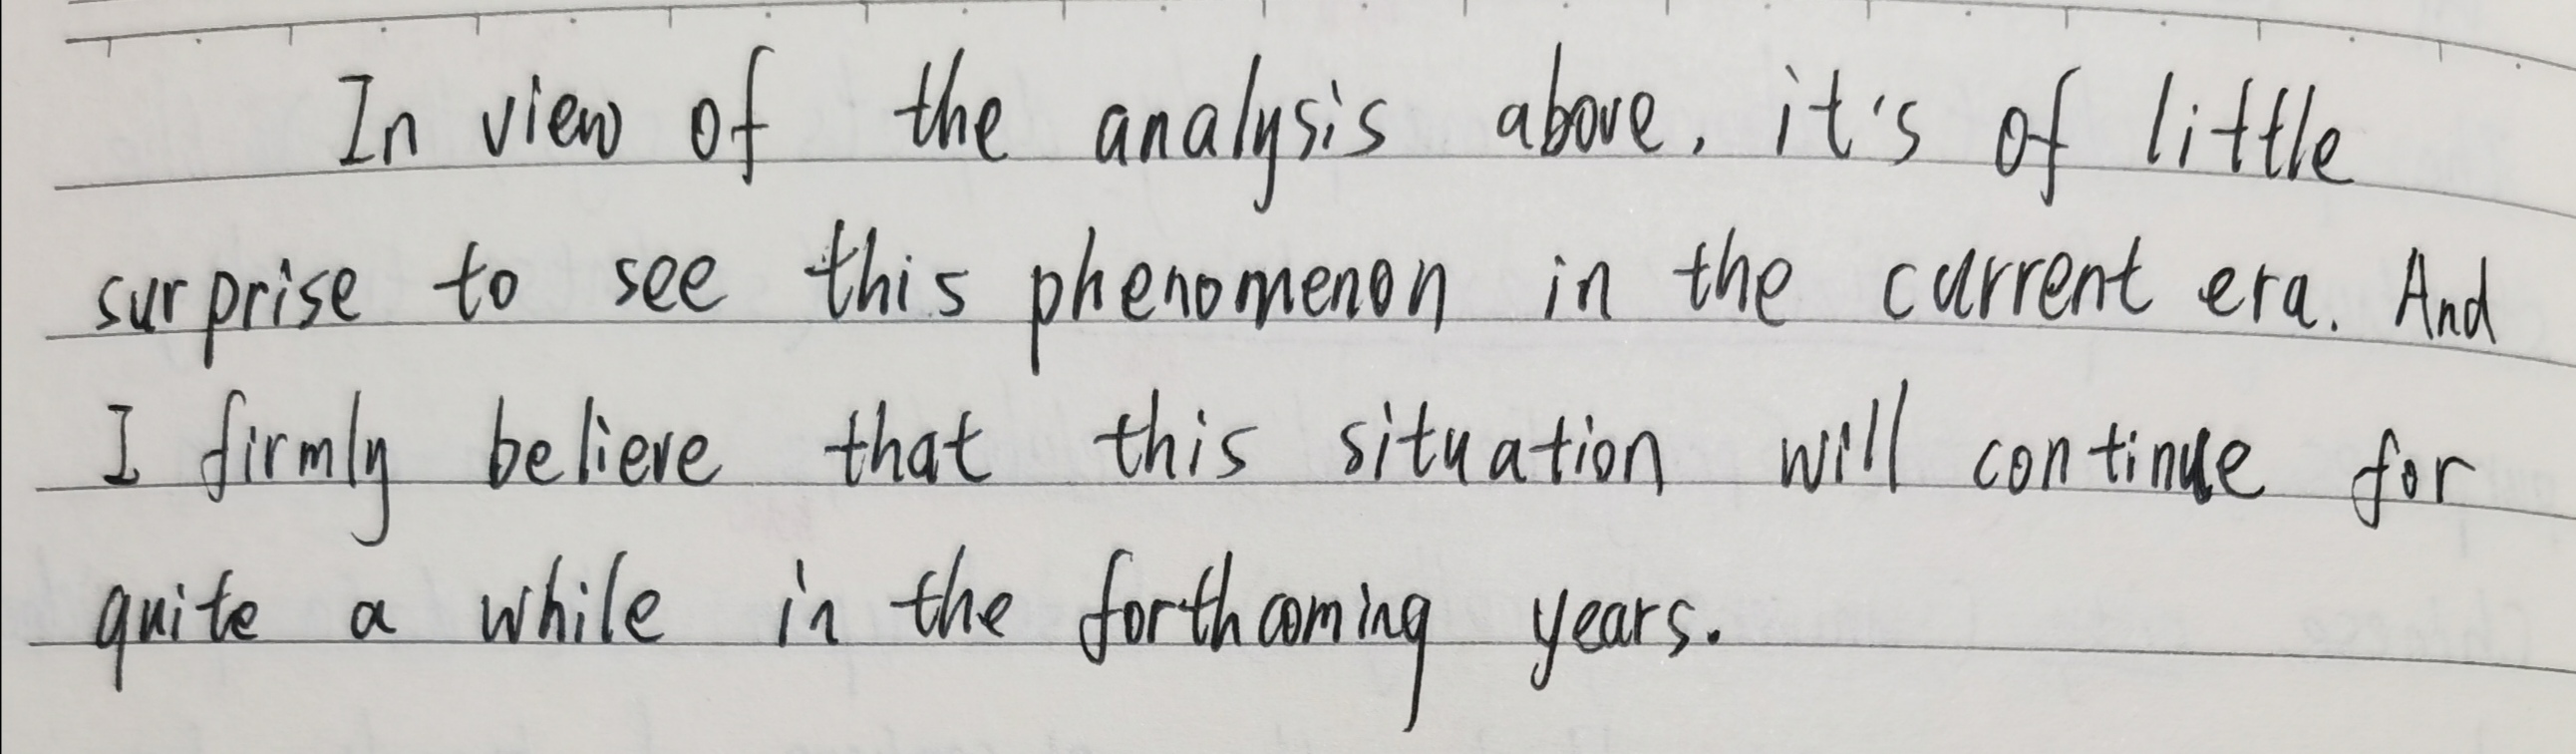 In view of the analysis above, it's of little
surprise to see this phenomenon in the current era. And
I firmly believe that this situation will continue for
quite a while in the forthcoming years.